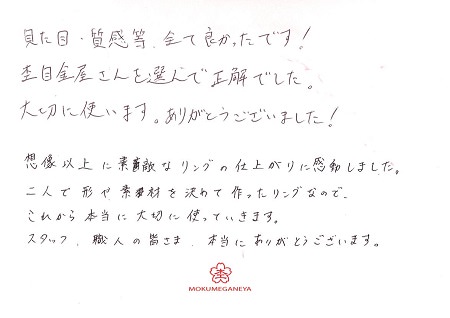 見た目・質感等、全て良かったです！
杢目金屋さんを選んで正解でした。
大切に使います。ありがとうございました！
想像以上に素敵なリングの仕上がりに感動しました。
二人で形や素材を決めて作ったリングなので、
これから本当に大切に使っていきます。
スタッフ、職人の皆さま、本当にありがとうございます。
杢
MOKUMEGANEYA